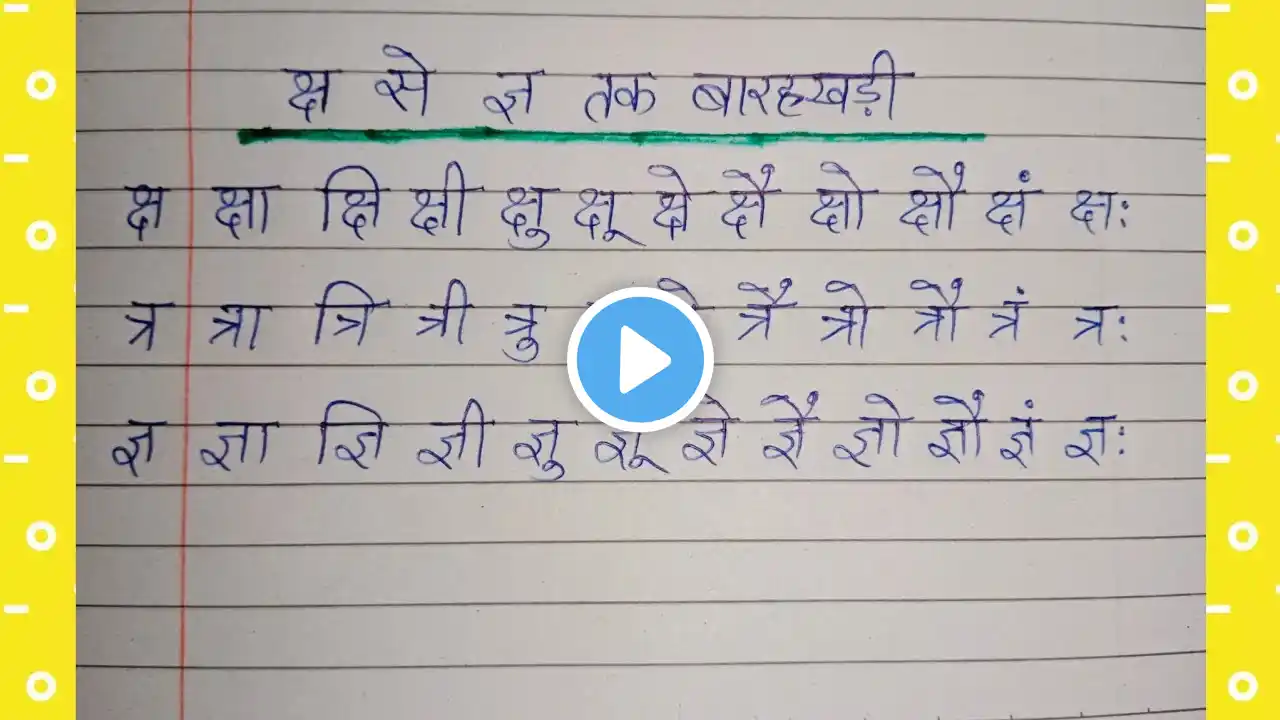 क्ष से ज्ञ तक बारहखड़ी
क्ष क्षा क्षि क्षी क्षु क्षू क्षे क्षै क्षो क्षौ क्षं क्षः
त्र त्रा त्रि त्री त्रु त्रै त्रो त्रौ त्रं त्रः
ज्ञ ज्ञा ज्ञि ज्ञी ज्ञु ज्ञू ज्ञे ज्ञै ज्ञो ज्ञौ ज्ञं ज्ञः